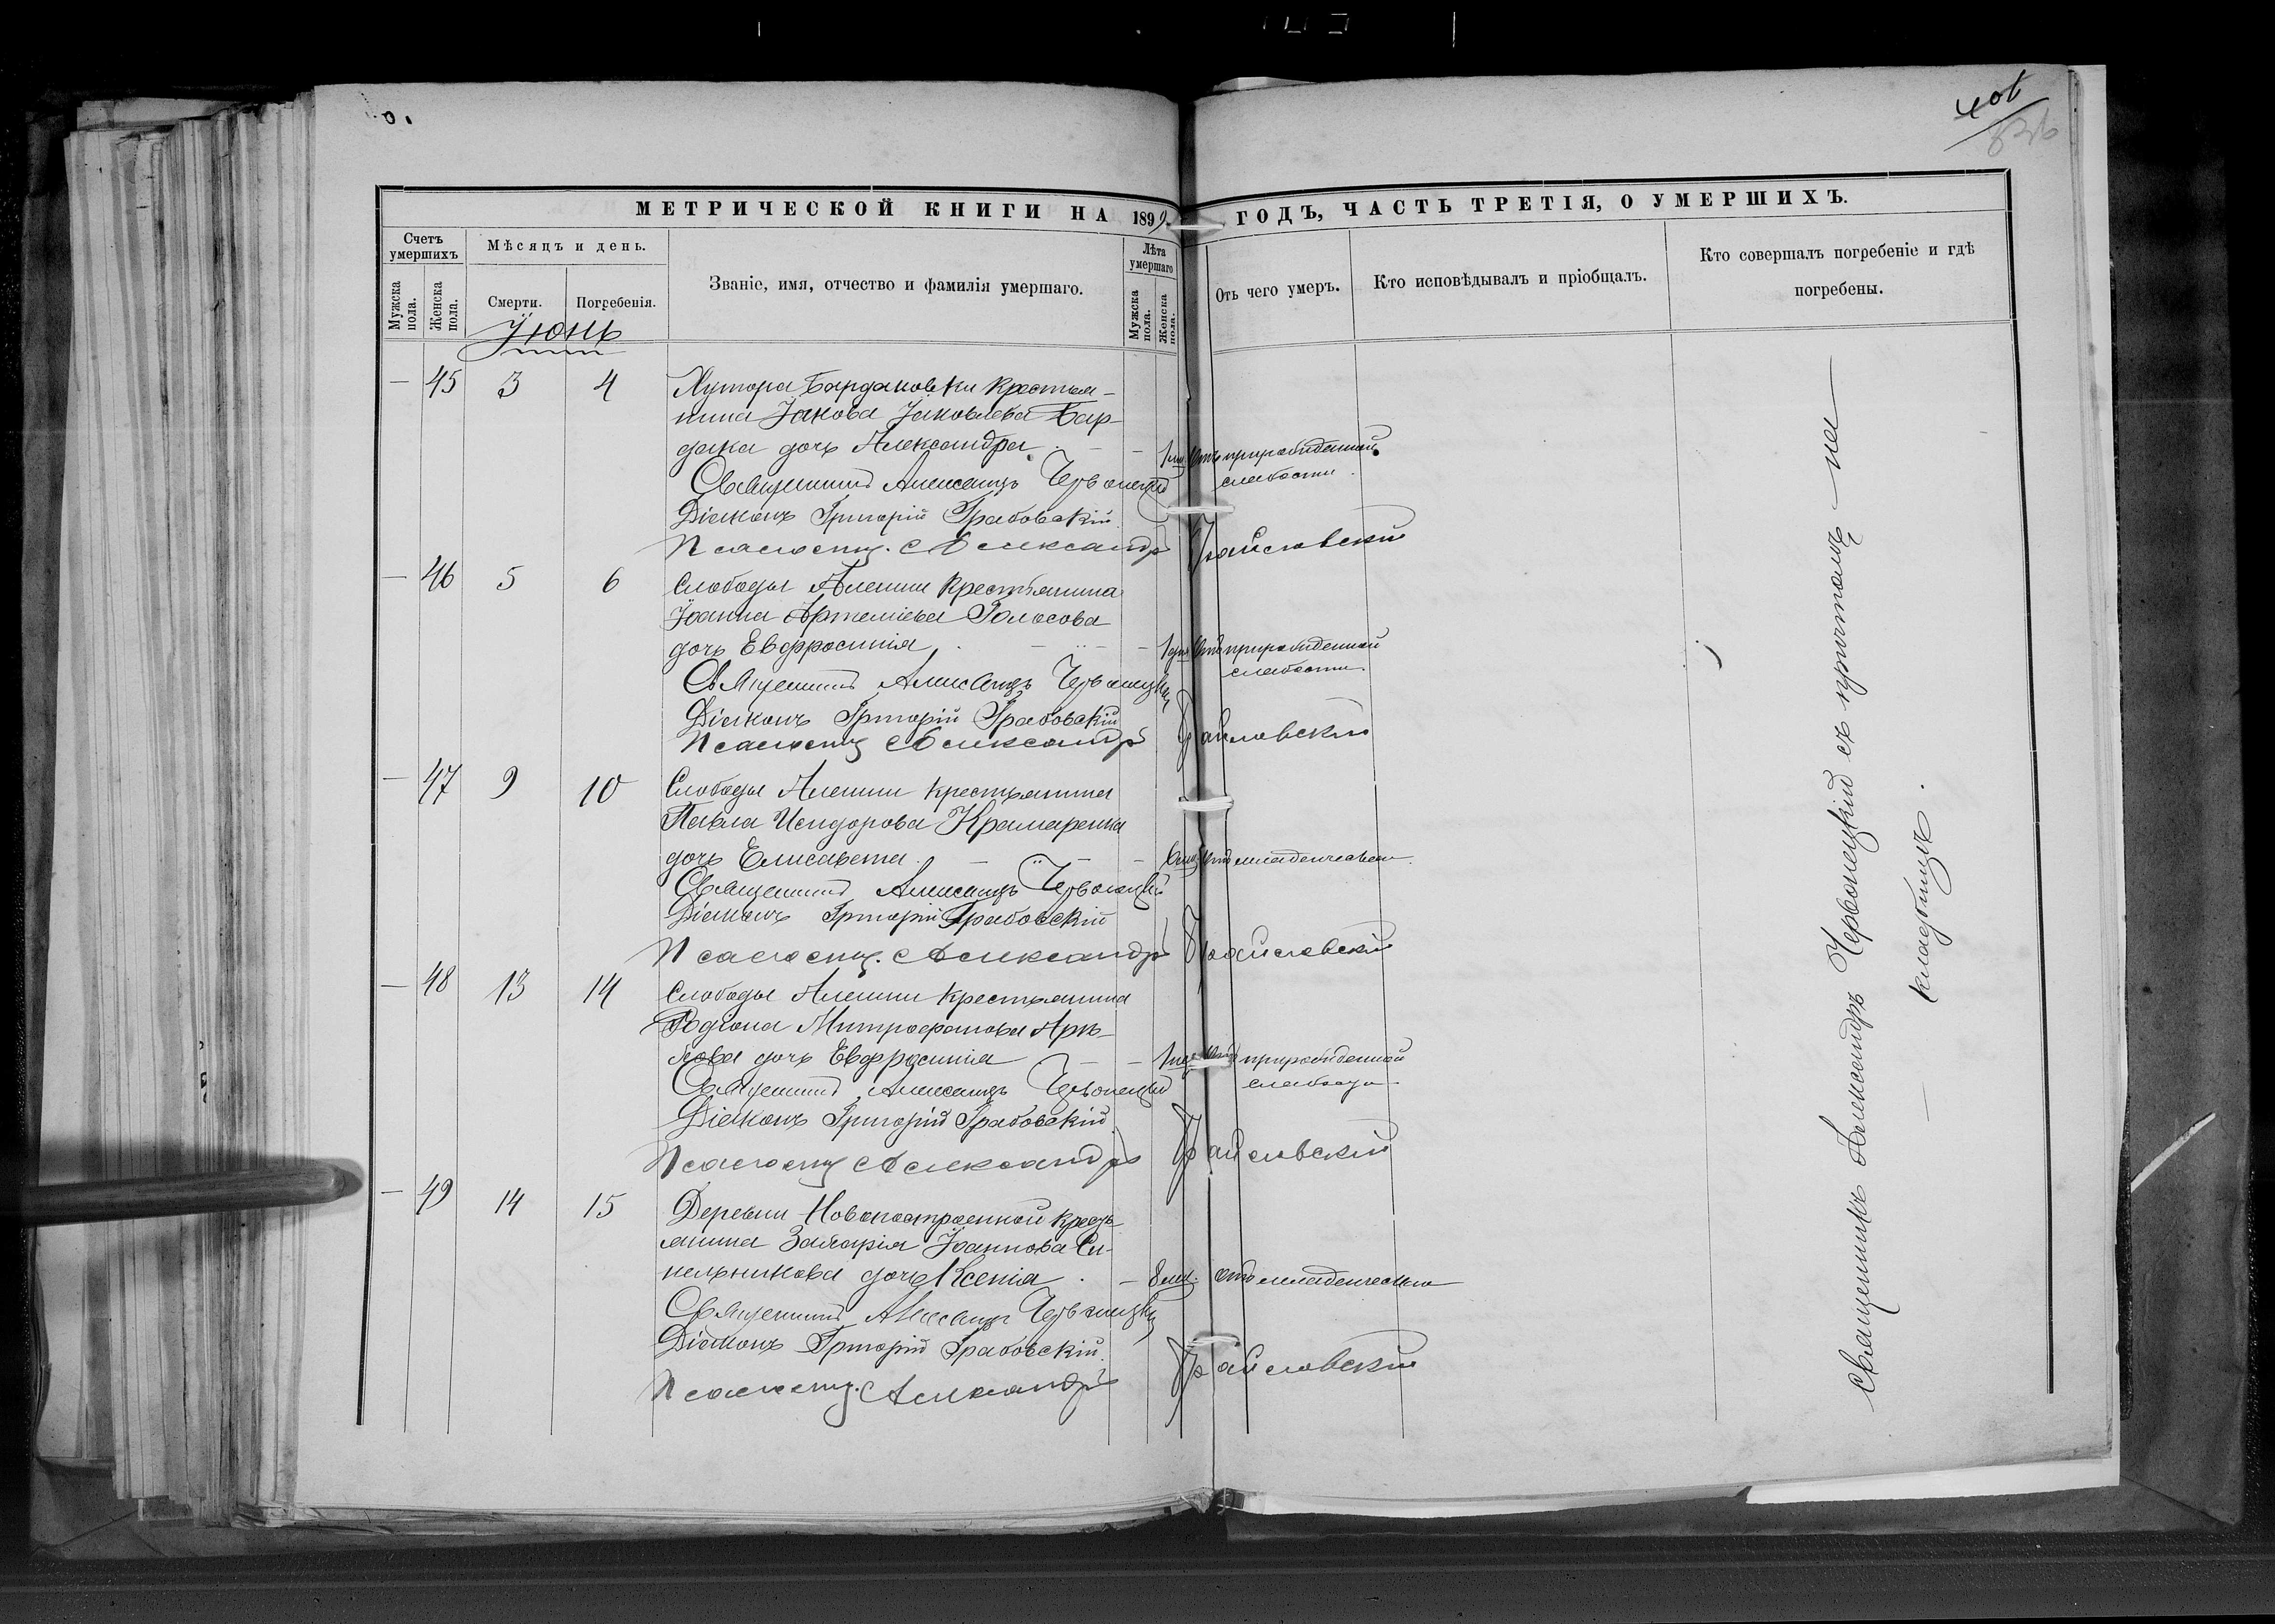 401
МЕТРИЧЕСКОЙ КНИГИ НА 1899 ГОДЪ, ЧАСТЬ ТРЕТІЯ, О УМЕРШИХЪ.
Счетъ умершихъ
Мѣсяцъ и день.
Званіе, имя, отчество и фамилія умершаго.
Лѣта умершаго
Отъ чего умеръ.
Кто исповѣдывалъ и пріобщалъ.
Кто совершалъ погребеніе и гдѣ
погребены.
Мужска пола.
Женска пола.
Смерти.
Погребенія.
Мужска пола.
Женска пола.
Іюнь
— 45 3 4 Хутора Бардаковки крестья-
нина Іакова Іаковлева Бар-
дака дочь Александра. — — 1 отъ прирожденной
слабости.
Священникъ Александръ Червонецкій
Діаконъ Григорій Грабовскій
Псаломщ. Александръ
— 46 5 6 Слободы Алешки крестьянина
Іоанна Артеміева Голосова
дочь Евфросинія — — 1 дня отъ прирожденной
слабости.
Священникъ Александръ Червонецкій
Діаконъ Григорій Грабовскій
Псаломщ Александръ
— 47 9 10 Слободы Алешки крестьянина
Павла Исидорова Крамаренка
дочь Елисавета. — — отъ младенческой
Священникъ Александръ Червонецкій
Діаконъ Григорій Грабовскій
Псаломщ. Александръ
— 48 13 14 Слободы Алешки крестьянина
Родіона Митрофанова
дочь Евфросинія — — 1 отъ прирожденной
Священникъ Александръ Червонецкій
Діаконъ Григорій Грабовскій
Псаломщ Александръ
— 49 14 15 Деревни Новопостроенной кресть-
янина Захарія Іоаннова Си-
нельникова дочь Ксенія. — 8 отъ младенческой
Священникъ Александръ Червонецкій
Діаконъ Григорій Грабовскій
Псаломщ. Александръ
Священникъ Александръ Червонецкій съ причтомъ — на —
— кладбищѣ.